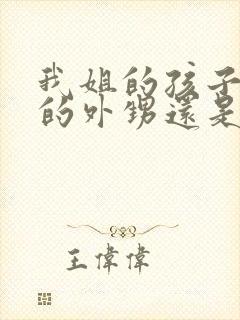 我姐的孩子
的外甥還是
王偉偉